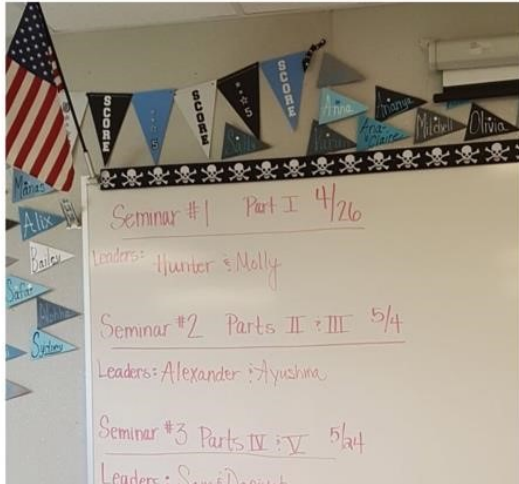 SCORE
SCORE
SCORE
Anna
Ananya
Ana-Claire
Mitchell
Olivia
Manas
Alix
Bailey
Safar
Sydney
Seminar #1 Part I 4/26
Leaders: Hunter & Molly
Seminar #2 Parts II & III 5/4
Leaders: Alexander & Ayushma
Seminar #3 Parts IV & V 5/24
Leaders: Sam &